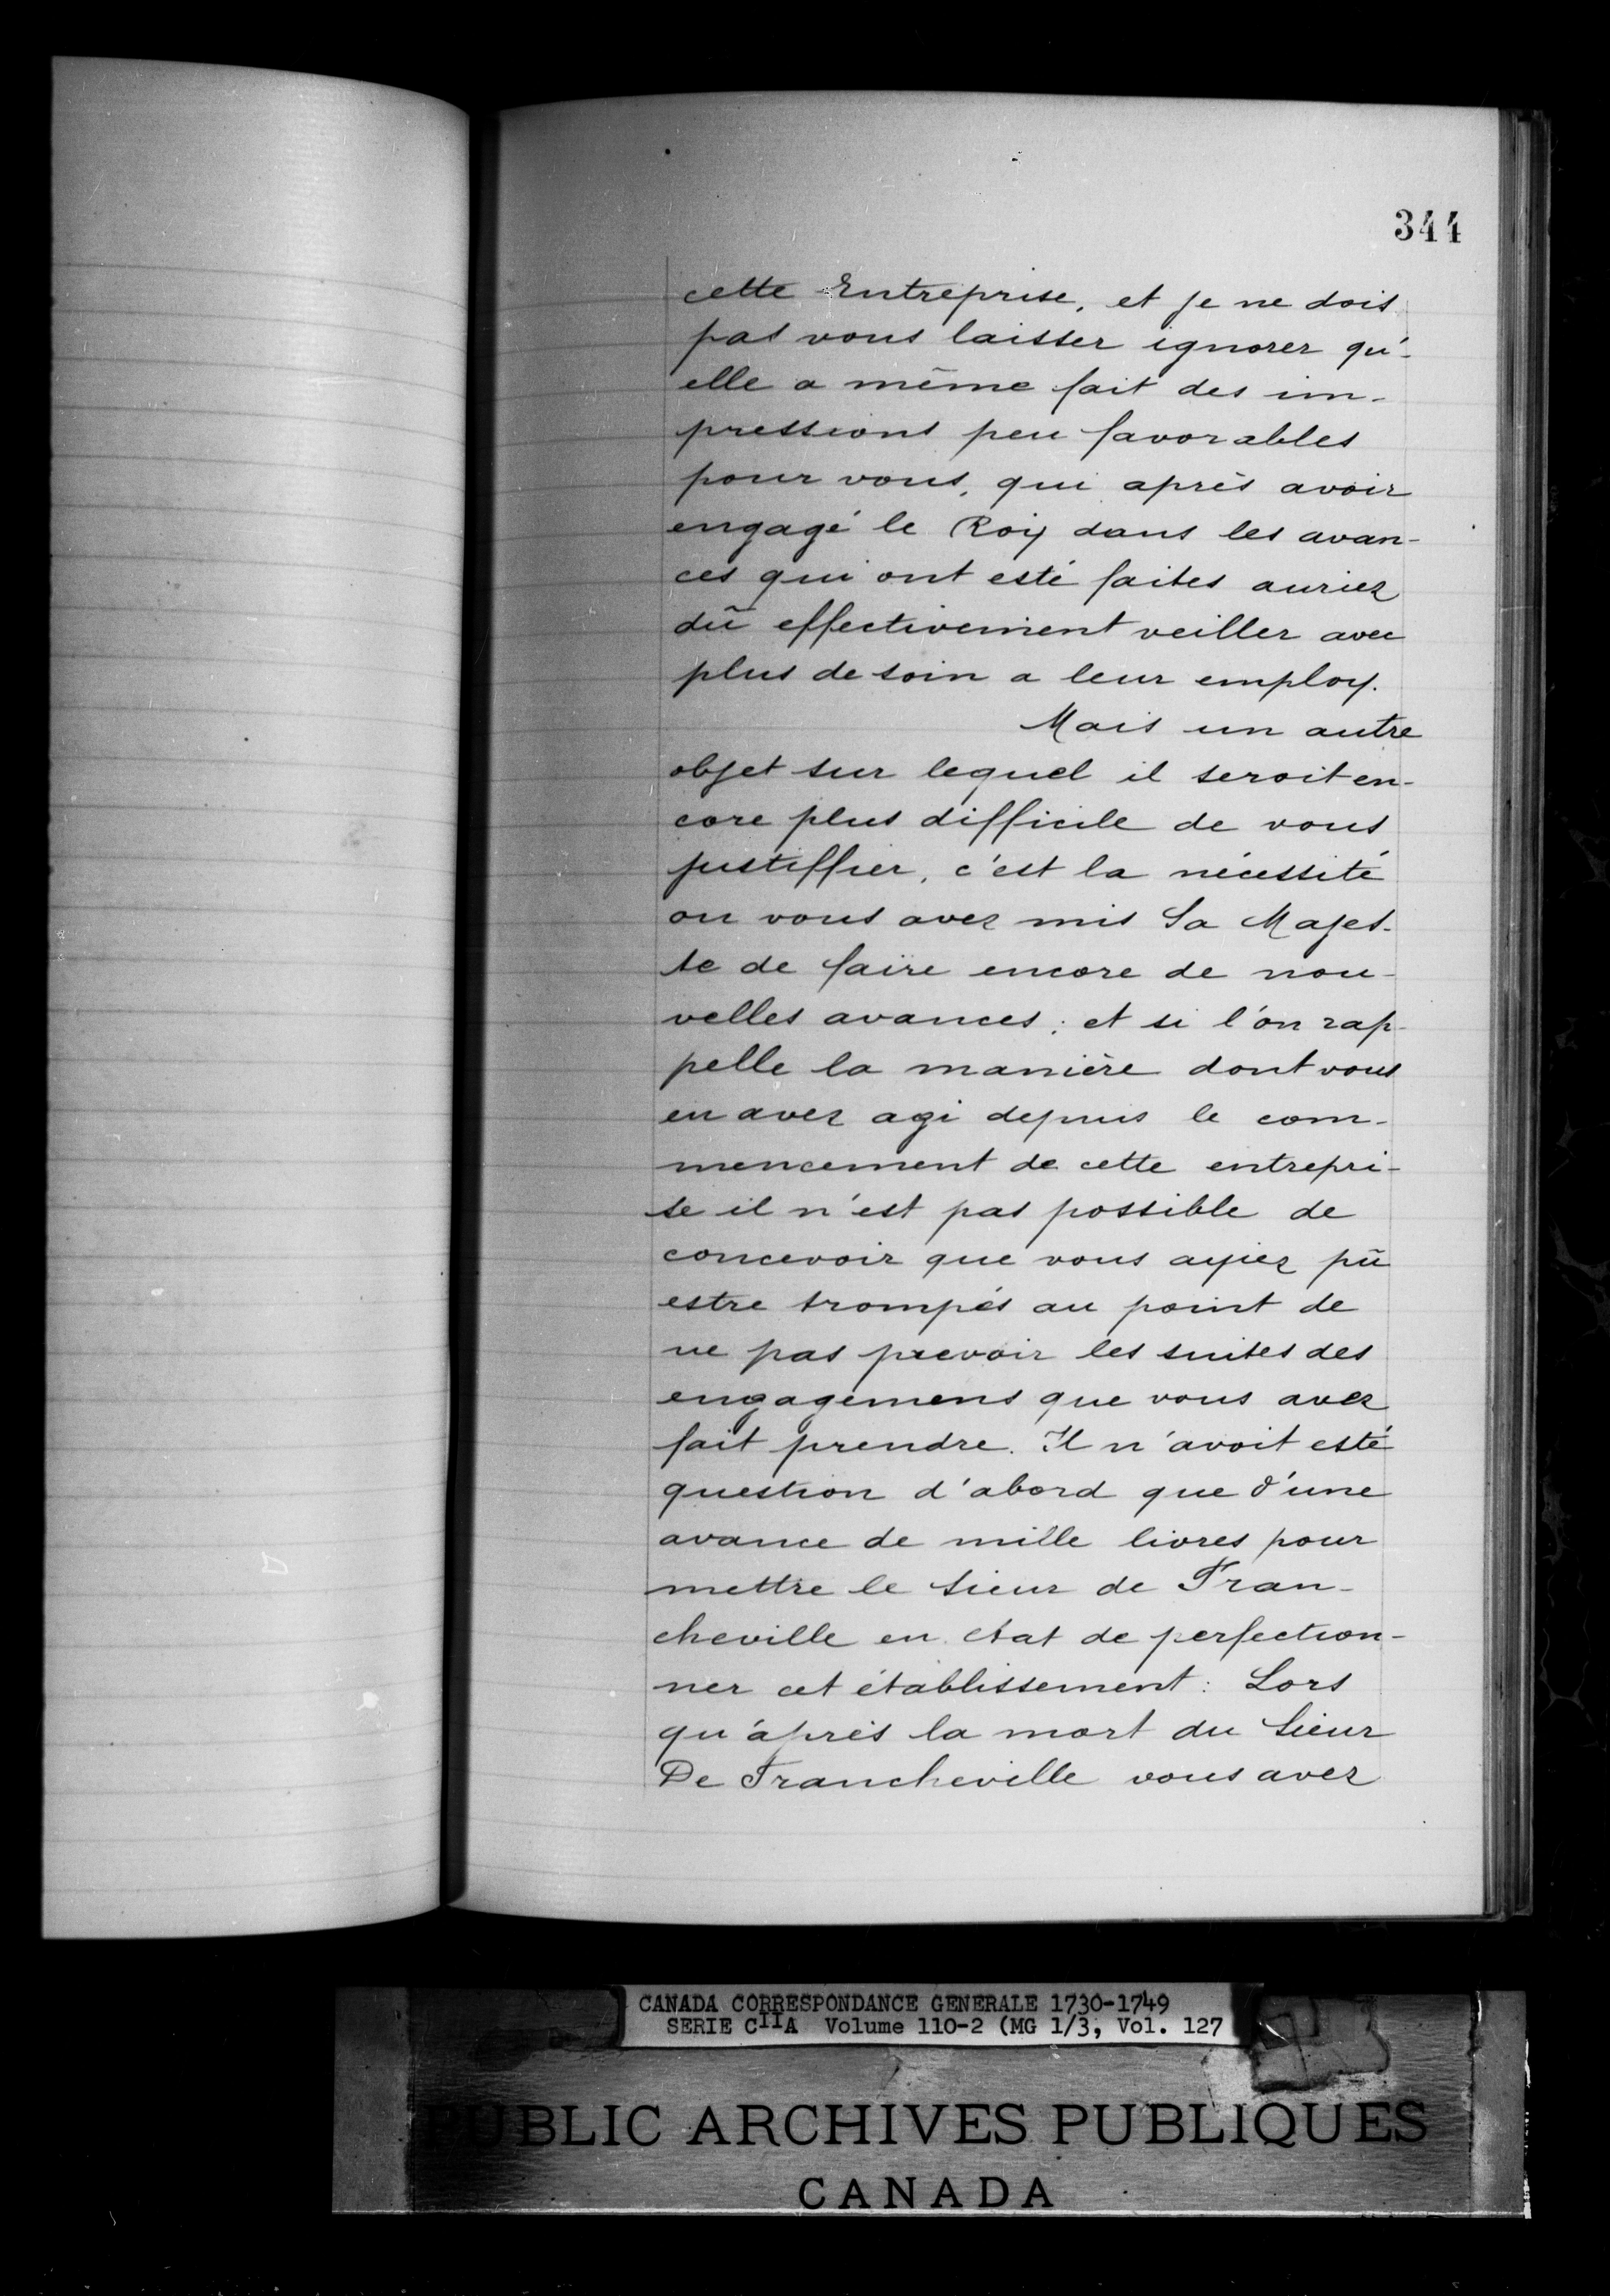 344
cette Entreprise, et je ne dois
pas vous laisser ignorer qu'-
elle a même fait des im-
pressions peu favorables
pour vous, qui après avoir
engagé le Roy dans les avan-
ces qui ont esté faites auriez
dû effectivement veiller avec
plus de soin a leur employ.
Mais un autre
objet sur lequel il seroit en-
core plus difficile de vous
justiffier, c'est la nécessité
ou vous avez mis Sa Majes-
te de faire encore de nou-
velles avances; et si l'on rap-
pelle la manière dont vous
en avez agi depuis le com-
mencement de cette entrepri-
se il n'est pas possible de
concevoir que vous ayiez pû
estre trompés au point de
ne pas prevoir les suites des
engagemens que vous avez
fait prendre. Il n'avoit esté
question d'abord que d'une
avance de mille livres pour
mettre le Sieur de Fran-
cheville en etat de perfection-
ner cet établissement: Lors
qu'après la mort du Sieur
De Francheville vous avez
CANADA CORRESPONDANCE GENERALE 1730-1749
SERIE CIIA Volume 110-2 (MG 1/3, Vol. 127
PUBLIC ARCHIVES PUBLIQUES
CANADA